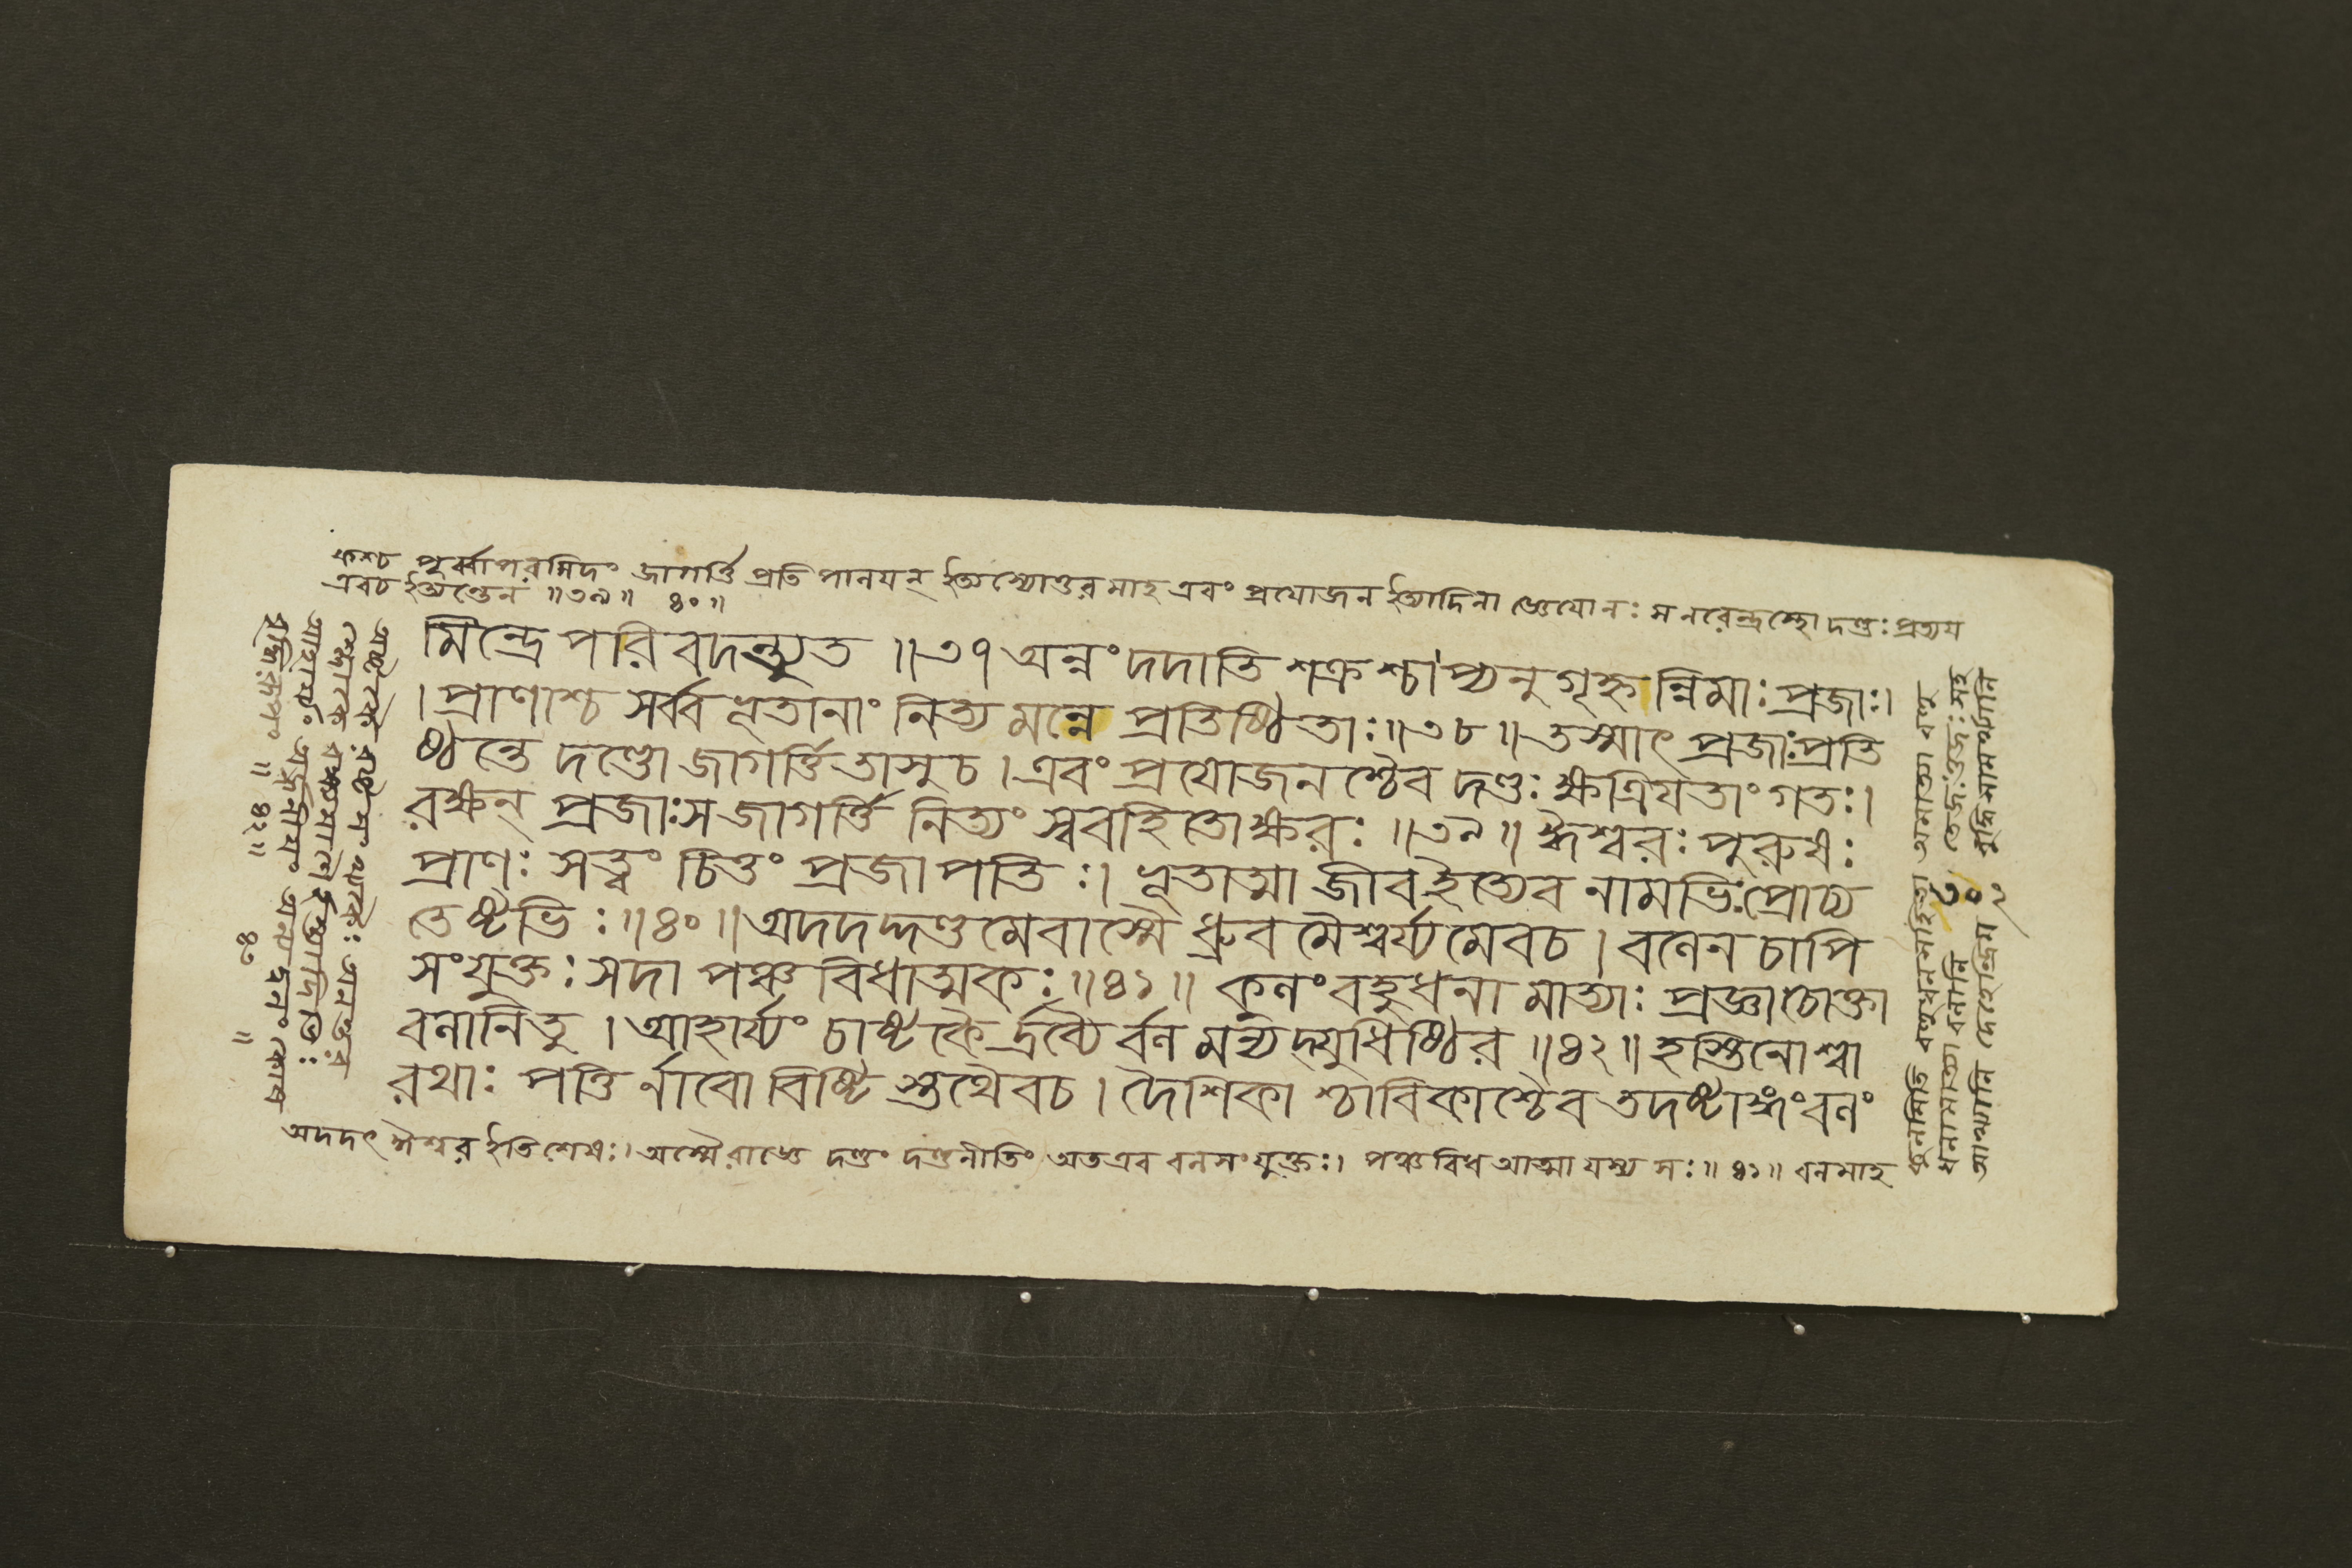 কশ্চ পূর্ব্বাপরমিদং জাগর্ত্তি প্রতিপালয়ন্ ইত্যস্যোত্তরমাহ এবং প্রযোজন ইত্যাদিনা স নরেন্দ্রস্থো দণ্ডঃ প্রত্যয
এবচ ইত্যন্তেন ॥৩৯॥ ৪০॥
মিন্দ্রে পরিবদন্ত্যুত ॥৩৭ অন্নং দদাতি শক্রশ্চাপ্যনুগৃহ্নন্নিমাঃ প্রজাঃ।
।প্রাণাশ্চ সর্ব্বভূতানাং নিত্যমন্নে প্রতিষ্ঠিতাঃ॥৩৮॥ তস্মাৎ প্রজাঃপ্রতি
ষ্ঠন্তে দণ্ডো জাগর্ত্তি তাসুচ। এবং প্রযোজনশ্চৈব দণ্ডঃ ক্ষত্রিযতাং গতঃ।
রক্ষন্ প্রজাঃস জাগর্ত্তি নিত্যং স্ববহিতোক্ষরঃ ॥৩৯॥ ঈশ্বরঃ পুরুষঃ
প্রাণঃ সত্ত্বং চিত্তং প্রজাপতিঃ। ভূতাত্মা জীব ইত্যেব নামভিঃপ্রোচ্য
তেষ্টভিঃ ॥৪০॥ অদদদ্দণ্ডমেবাস্মৈ ধ্রুবমৈশ্বর্য্যমেবচ। বলেন চাপি
সংযুক্তঃ সদা পঞ্চবিধাত্মকঃ ॥৪১॥ কুলং বহুধনামাত্যাঃ প্রজ্ঞাচোক্তা
বলানিতু। আহার্য্যং চাষ্টকৈর্দ্রব্যৈর্বলমন্যদ্যুধিষ্ঠির ॥৪২॥ হস্তিনোশ্বা
রথাঃ পত্তির্নাবো বিষ্টিস্তথৈবচ। দৈশিকাশ্চাবিকাশ্চৈব তদষ্টাঙ্গং বলং
অদদৎ ঈশ্বর ইতিশেষঃ। অস্মৈ রাজ্ঞে দণ্ডং দণ্ডনীতিং অতএব বলসংযুক্তঃ। পঞ্চবিধ আত্মা যস্য সঃ॥ ৪১॥ বলমাহ
কুলমিতি
ধনামাত্যা বলানি তেজঃ ওজঃ সহ
৩০২
আখ্যানি বুদ্ধিসামর্থ্যানি
আহার্য্যং অর্জনীযং অন্যদ্বলং কোষ
বৃদ্ধিরূপং ॥ ৪২॥ ৪৩ ॥